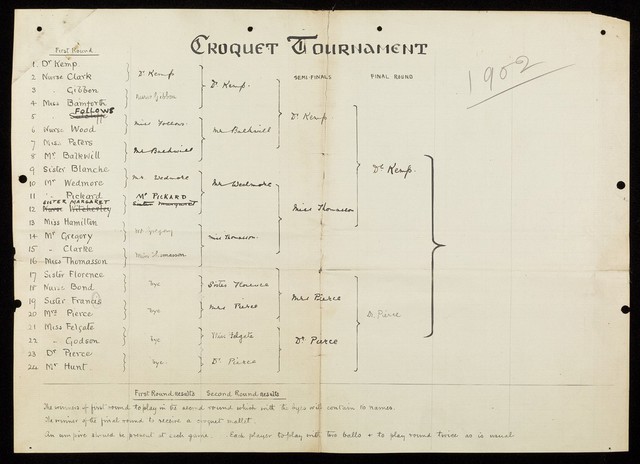 CROQUET TOURNAMENT
1902
First Round
SEMI-FINALS
FINAL ROUND
1. Dr Kemp
2 Nurse Clark
3 " Gibbon
4 Miss Bamforth
5 FOLLOWS
6 Nurse Wood
7 Miss Peters
8 Mr Balkwill
9 Sister Blanche
10 Mr Wedmore
11 " Pickard
12 SISTER MARGARET Nurse Witcherley
13 Miss Hamilton
14 Mr Gregory
15 " Clarke
16 Miss Thomasson
17 Sister Florence
18 Nurse Bond
19 Sister Francis
20 Mrs Pierce
21 Miss Felgate
22 " Godson
23 Dr Pierce
24 Mr Hunt.
Dr Kemp
Nurse Gibbon
Miss Follows
Mr Balkwill
Mr Wedmore
Mr PICKARD
Sister Margaret
Mr Gregory
Miss Thomasson
bye
bye
bye
bye
Dr Kemp.
Mr Balkwill
Mr Wedmore
Miss Thomasson.
Sister Florence
Mrs Pierce
Miss Felgate
Dr Pierce
Dr Kemp
Miss Thomasson
Mrs Pierce
Dr Pierce
Dr Kemp.
Dr Pierce
First Round results Second Round results
The winners of first round to play in the second round which with the byes will contain 16 names.
The winner of the final round to receive a croquet mallet.
An umpire should be present at each game. Each player to play with two balls & to play round twice as is usual